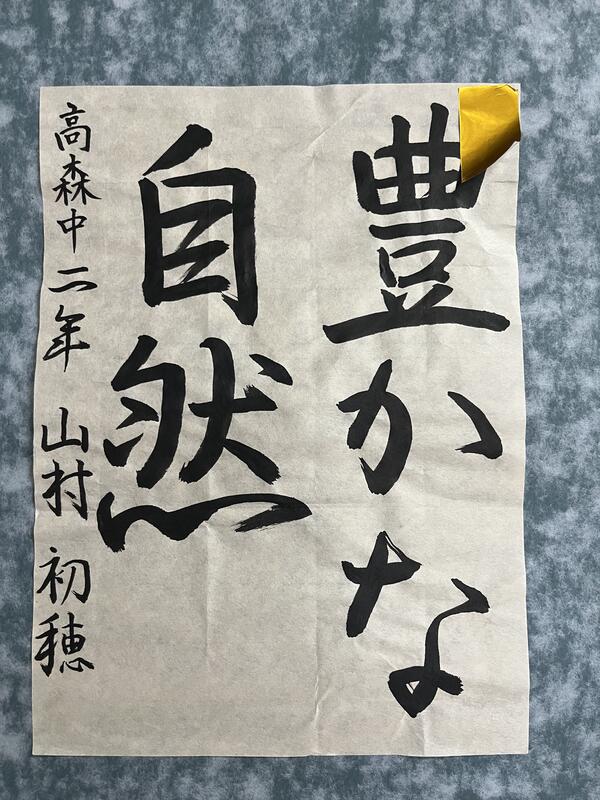 豊かな
自然
高森中二年 山村 初穂